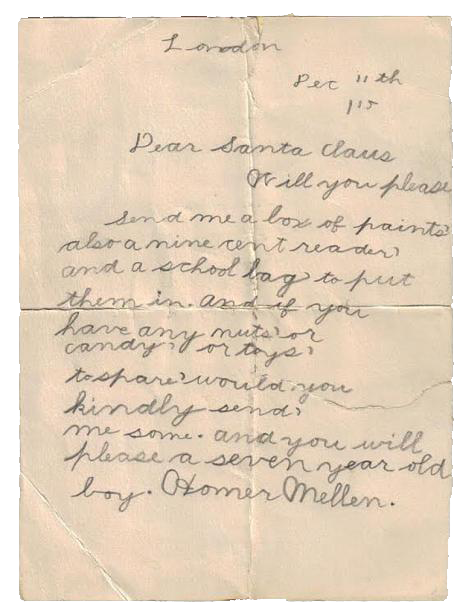 London
Dec 11th
115
Dear Santa Claus
Will you please
send me a box of paints,
also a nine cent reader,
and a school bag, to put
them in. and if you
have any nuts, or
candy, or toys,
to spare, would you
kindly send,
me some. and you will
please a seven year old
boy. Homer Mellen.